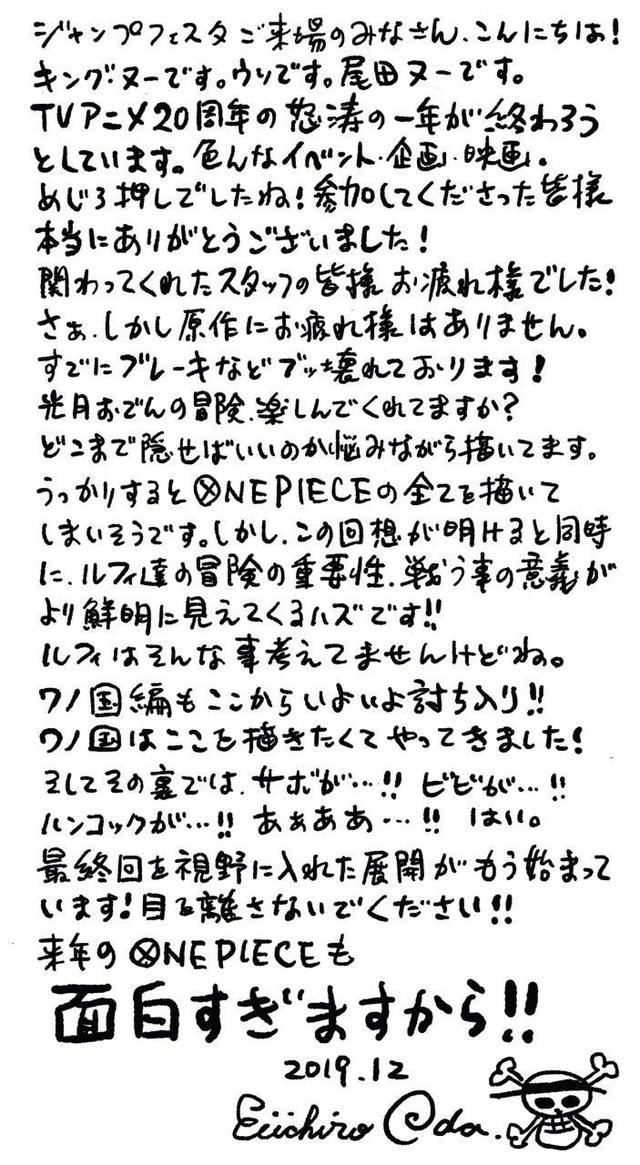 ジャンプフェスタご来場のみなさん、こんにちは!
キング・ヌーです。ウソです。尾田ヌーです。
TVアニメ20周年の怒涛の一年が終わろう
としています。色んなイベント・企画・映画。
めじろ押しでしたね!参加してくださった皆様
本当にありがとうございました!
関わってくれたスタッフの皆様 お疲れ様でした!
さぁ、しかし原作にお疲れ様はありません。
すでにブレーキなどブッ壊れております!
光月おでんの冒険、楽しんでくれてますか?
どこまで隠せばいいのか悩みながら描いてます。
うっかりするとONE PIECEの全てを描いて
しまいそうです。しかし、この回想が明けると同時
に、ルフィ達の冒険の重要性、戦う事の意義が
より鮮明に見えてくるハズです!!
ルフィはそんな事考えてませんけどね。
ワノ国編もここからいよいよ討ち入り!!
ワノ国はここを描きたくてやってきました!
そしてその裏では、サボが…!! ビビが…!!
ハンコックが…!! あぁああ…!! はい。
最終回を視野に入れた展開がもう始まって
います!目を離さないでください!!
来年のONE PIECEも
面白すぎますから!!
2019.12
Eiichiro Oda.